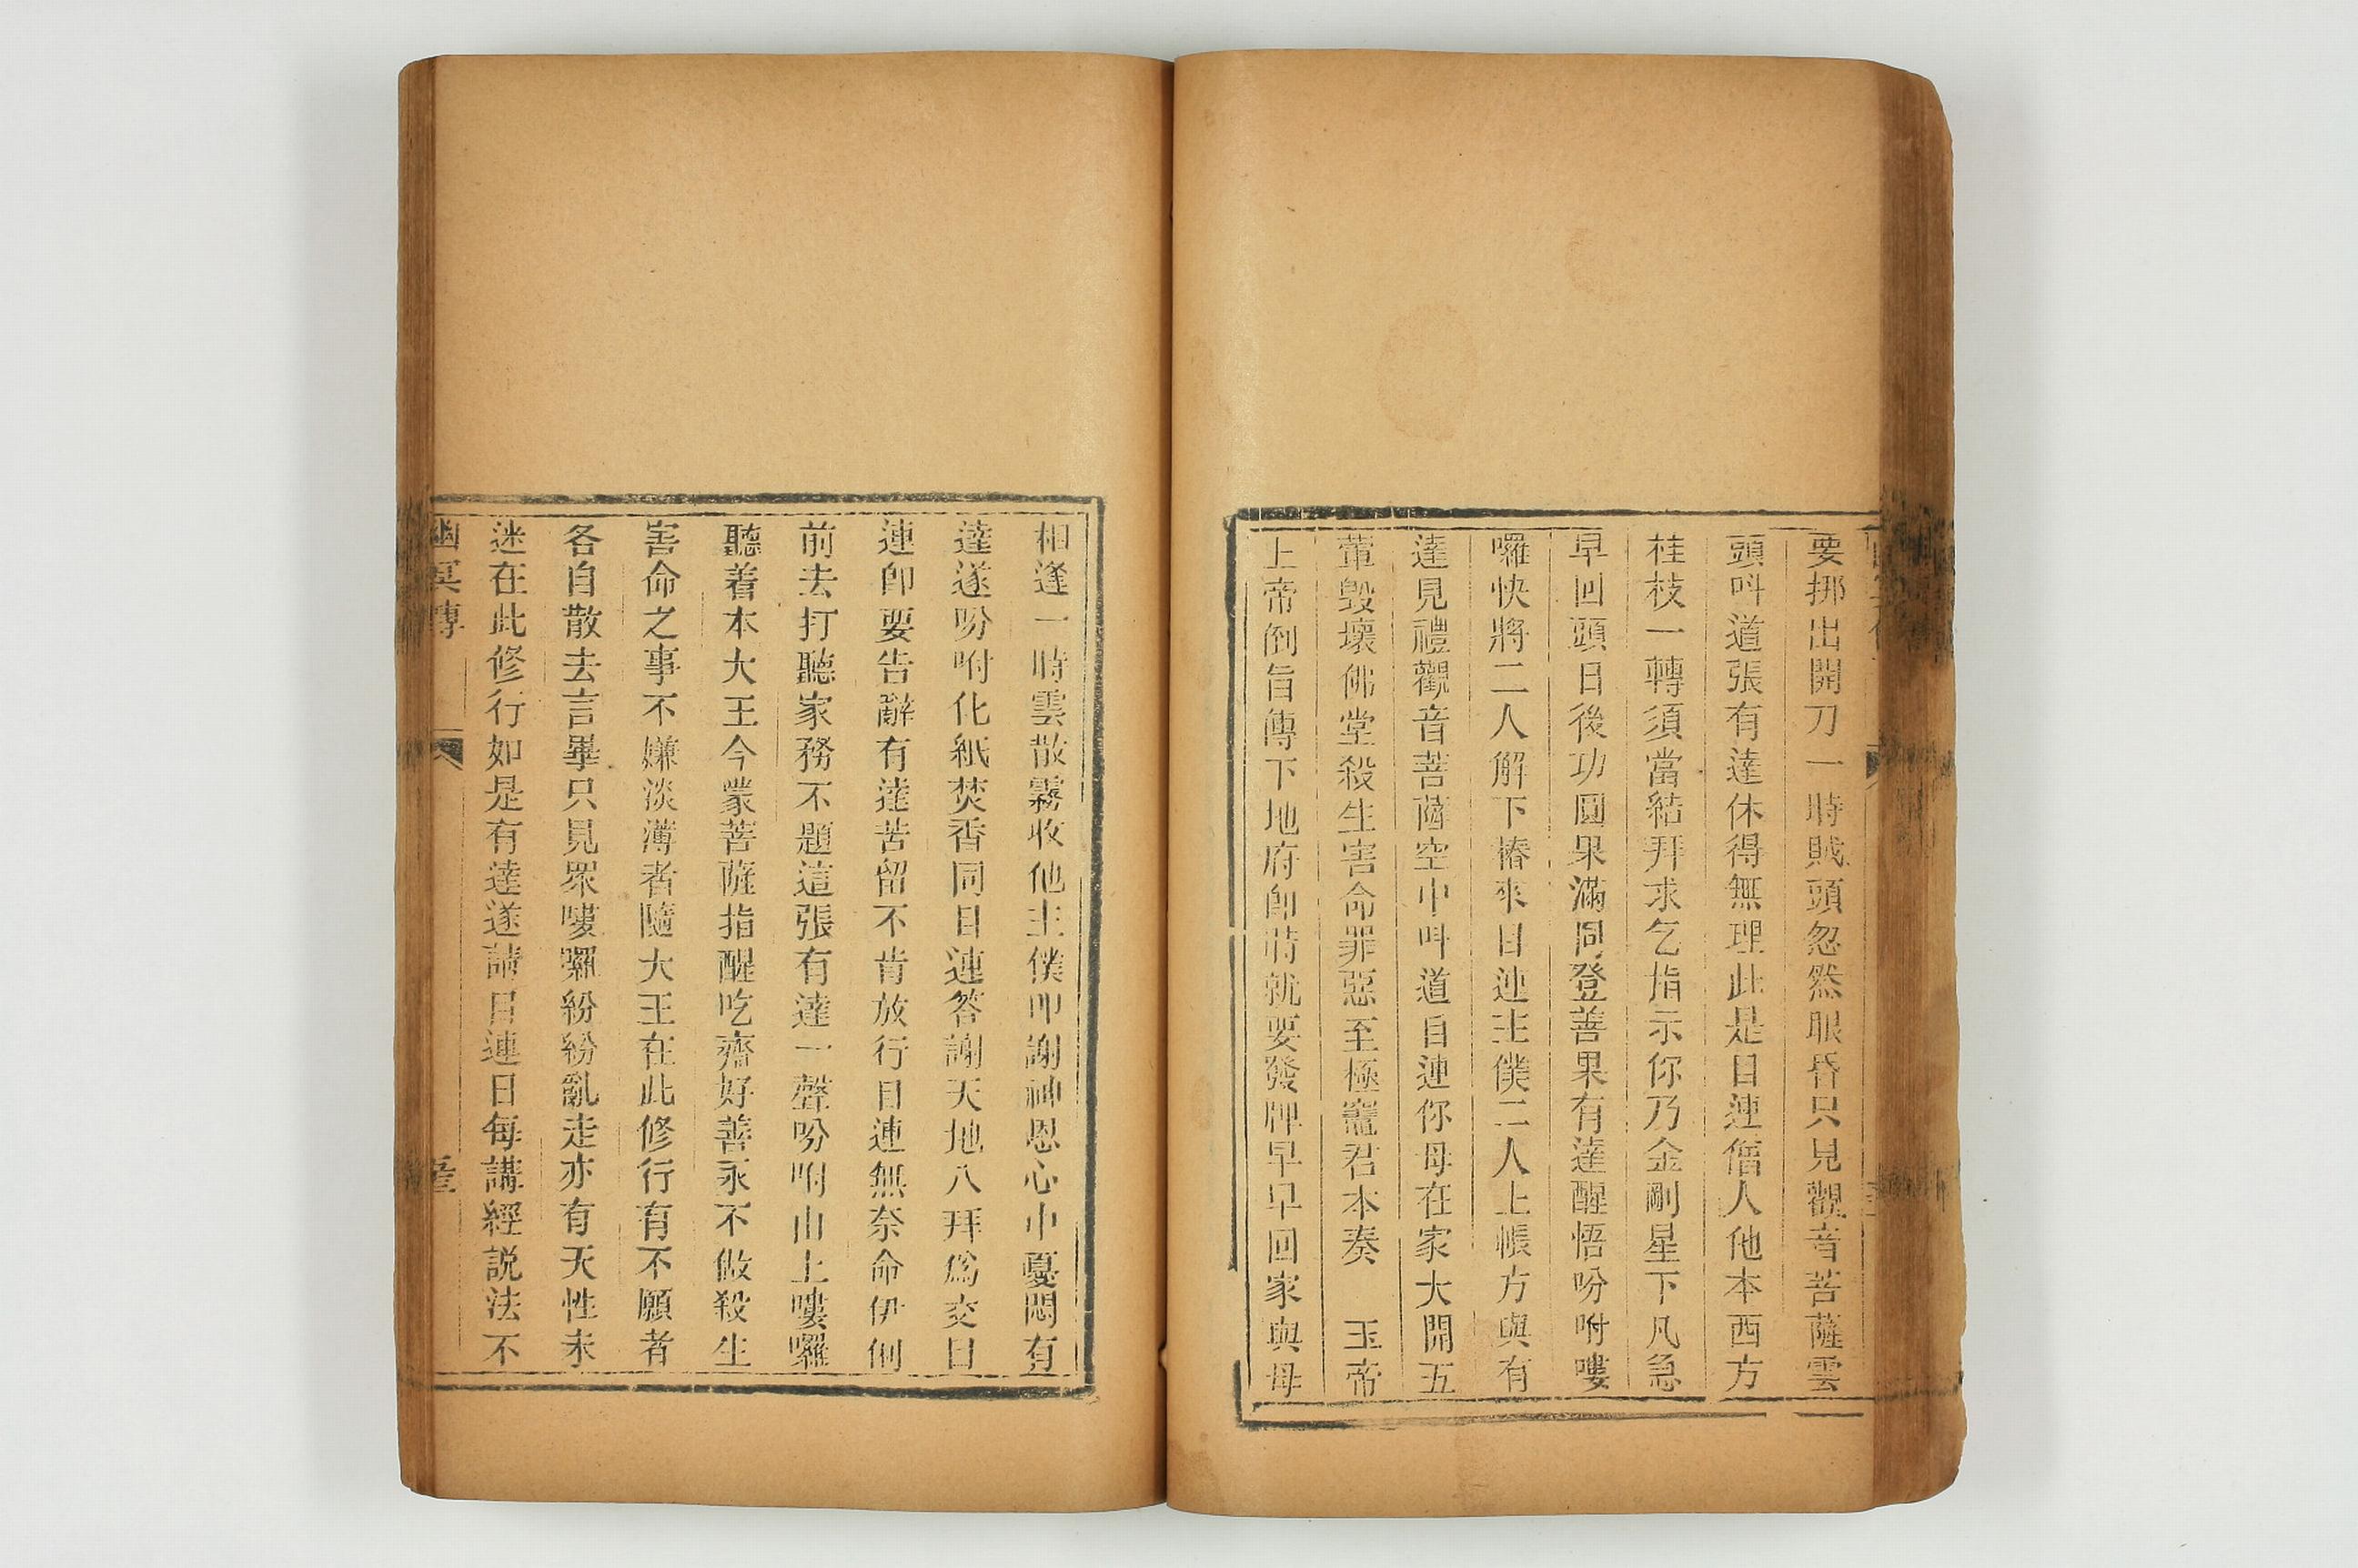 要挪出開刀一時賊頭忽然眼昏只見觀音菩薩雲
頭呌道張有達休得無理此是目連僧人他本西方
桂枝一轉須當結拜求乞指示你乃金剛星下凡急
早回頭日後功圓果滿同登善果有達醒悟吩咐嘍
囉快將二人解下椿來目連主僕二人上帳方與有
達見禮觀音菩薩空中呌道目連你母在家大開五
葷毀壞佛堂殺生害命罪惡至極竈君本奏　玉帝
上帝倒旨傳下地府即時就要發牌早早回家與母
相逢一時雲散霧收他主僕叩謝神恩心中憂悶有
達遂吩咐化紙焚香同目連答謝天地八拜爲交目
連即要告辭有達苦留不肯放行目連無奈命伊俐
前去打聽家務不題這張有達一聲吩咐山上嘍囉
聽着本大王今蒙菩薩指醒吃齋好善永不做殺生
害命之事不嫌淡薄者隨大王在此修行有不願者
各自散去言畢只見眾嘍囉紛紛亂走亦有天性未
迷在此修行如是有達遂請目連日每講經説法不
幽冥傳